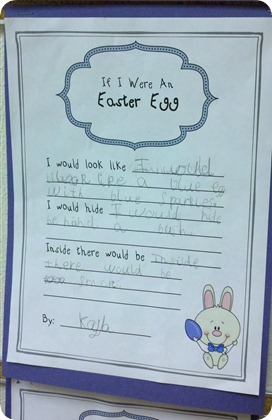 If I Were An
Easter Egg
I would look like I would
look like a blue eg
with blue sparkles
I would hide I would hide
behand a bush
Inside there would be Inside
there would be
smari
By: Kayla